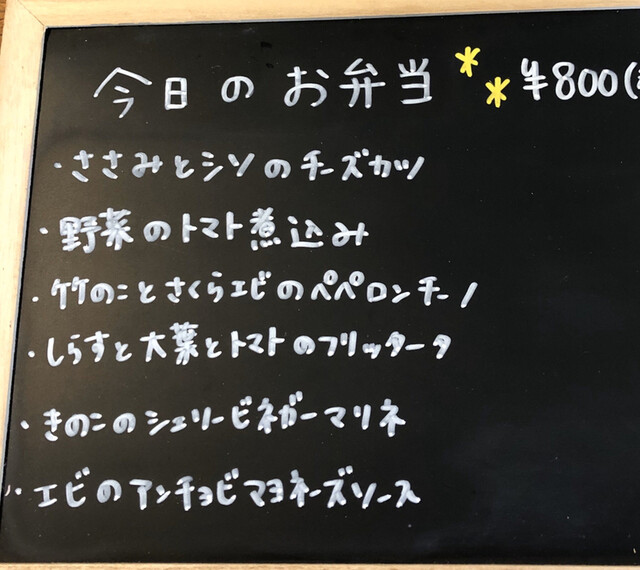 今日のお弁当 ** ¥800(
・ささみとシソのチーズカツ
・野菜のトマト煮込み
・竹のことさくらエビのペペロンチーノ
・しらすと大葉とトマトのフリッタータ
・きのこのシェリービネガーマリネ
・エビのアンチョビマヨネーズソース